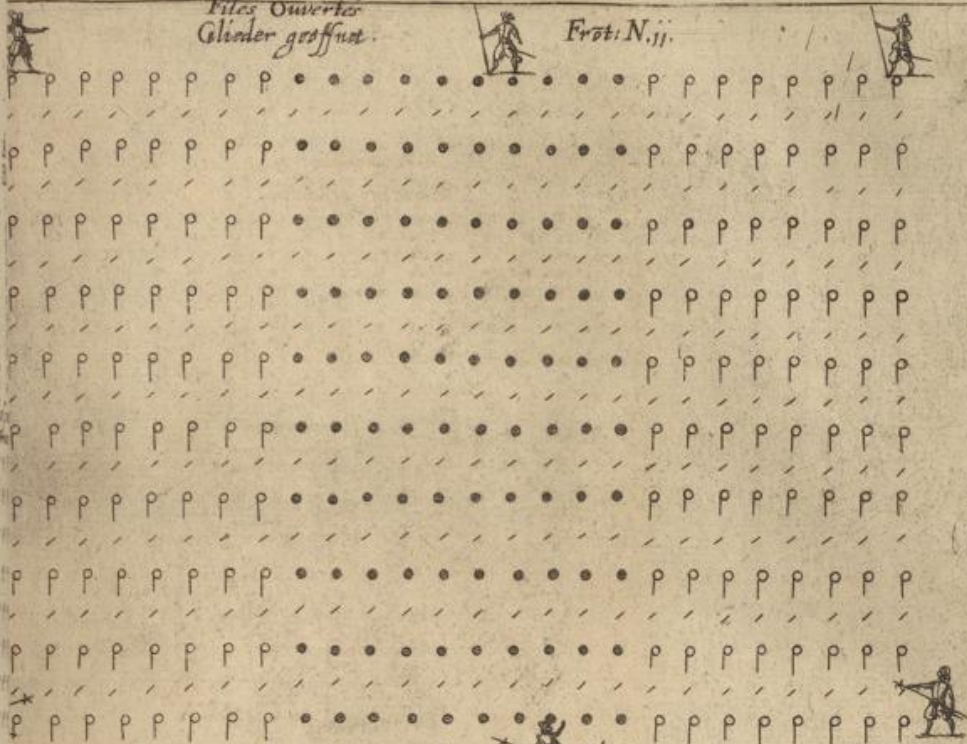 Files Ouvertes
Glieder geöffnet.
Frōt: N.jj.